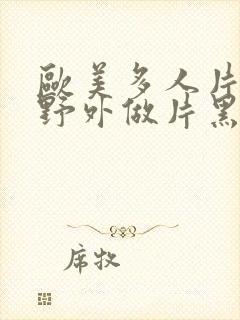 歐美多人片
野外做片黑
席牧